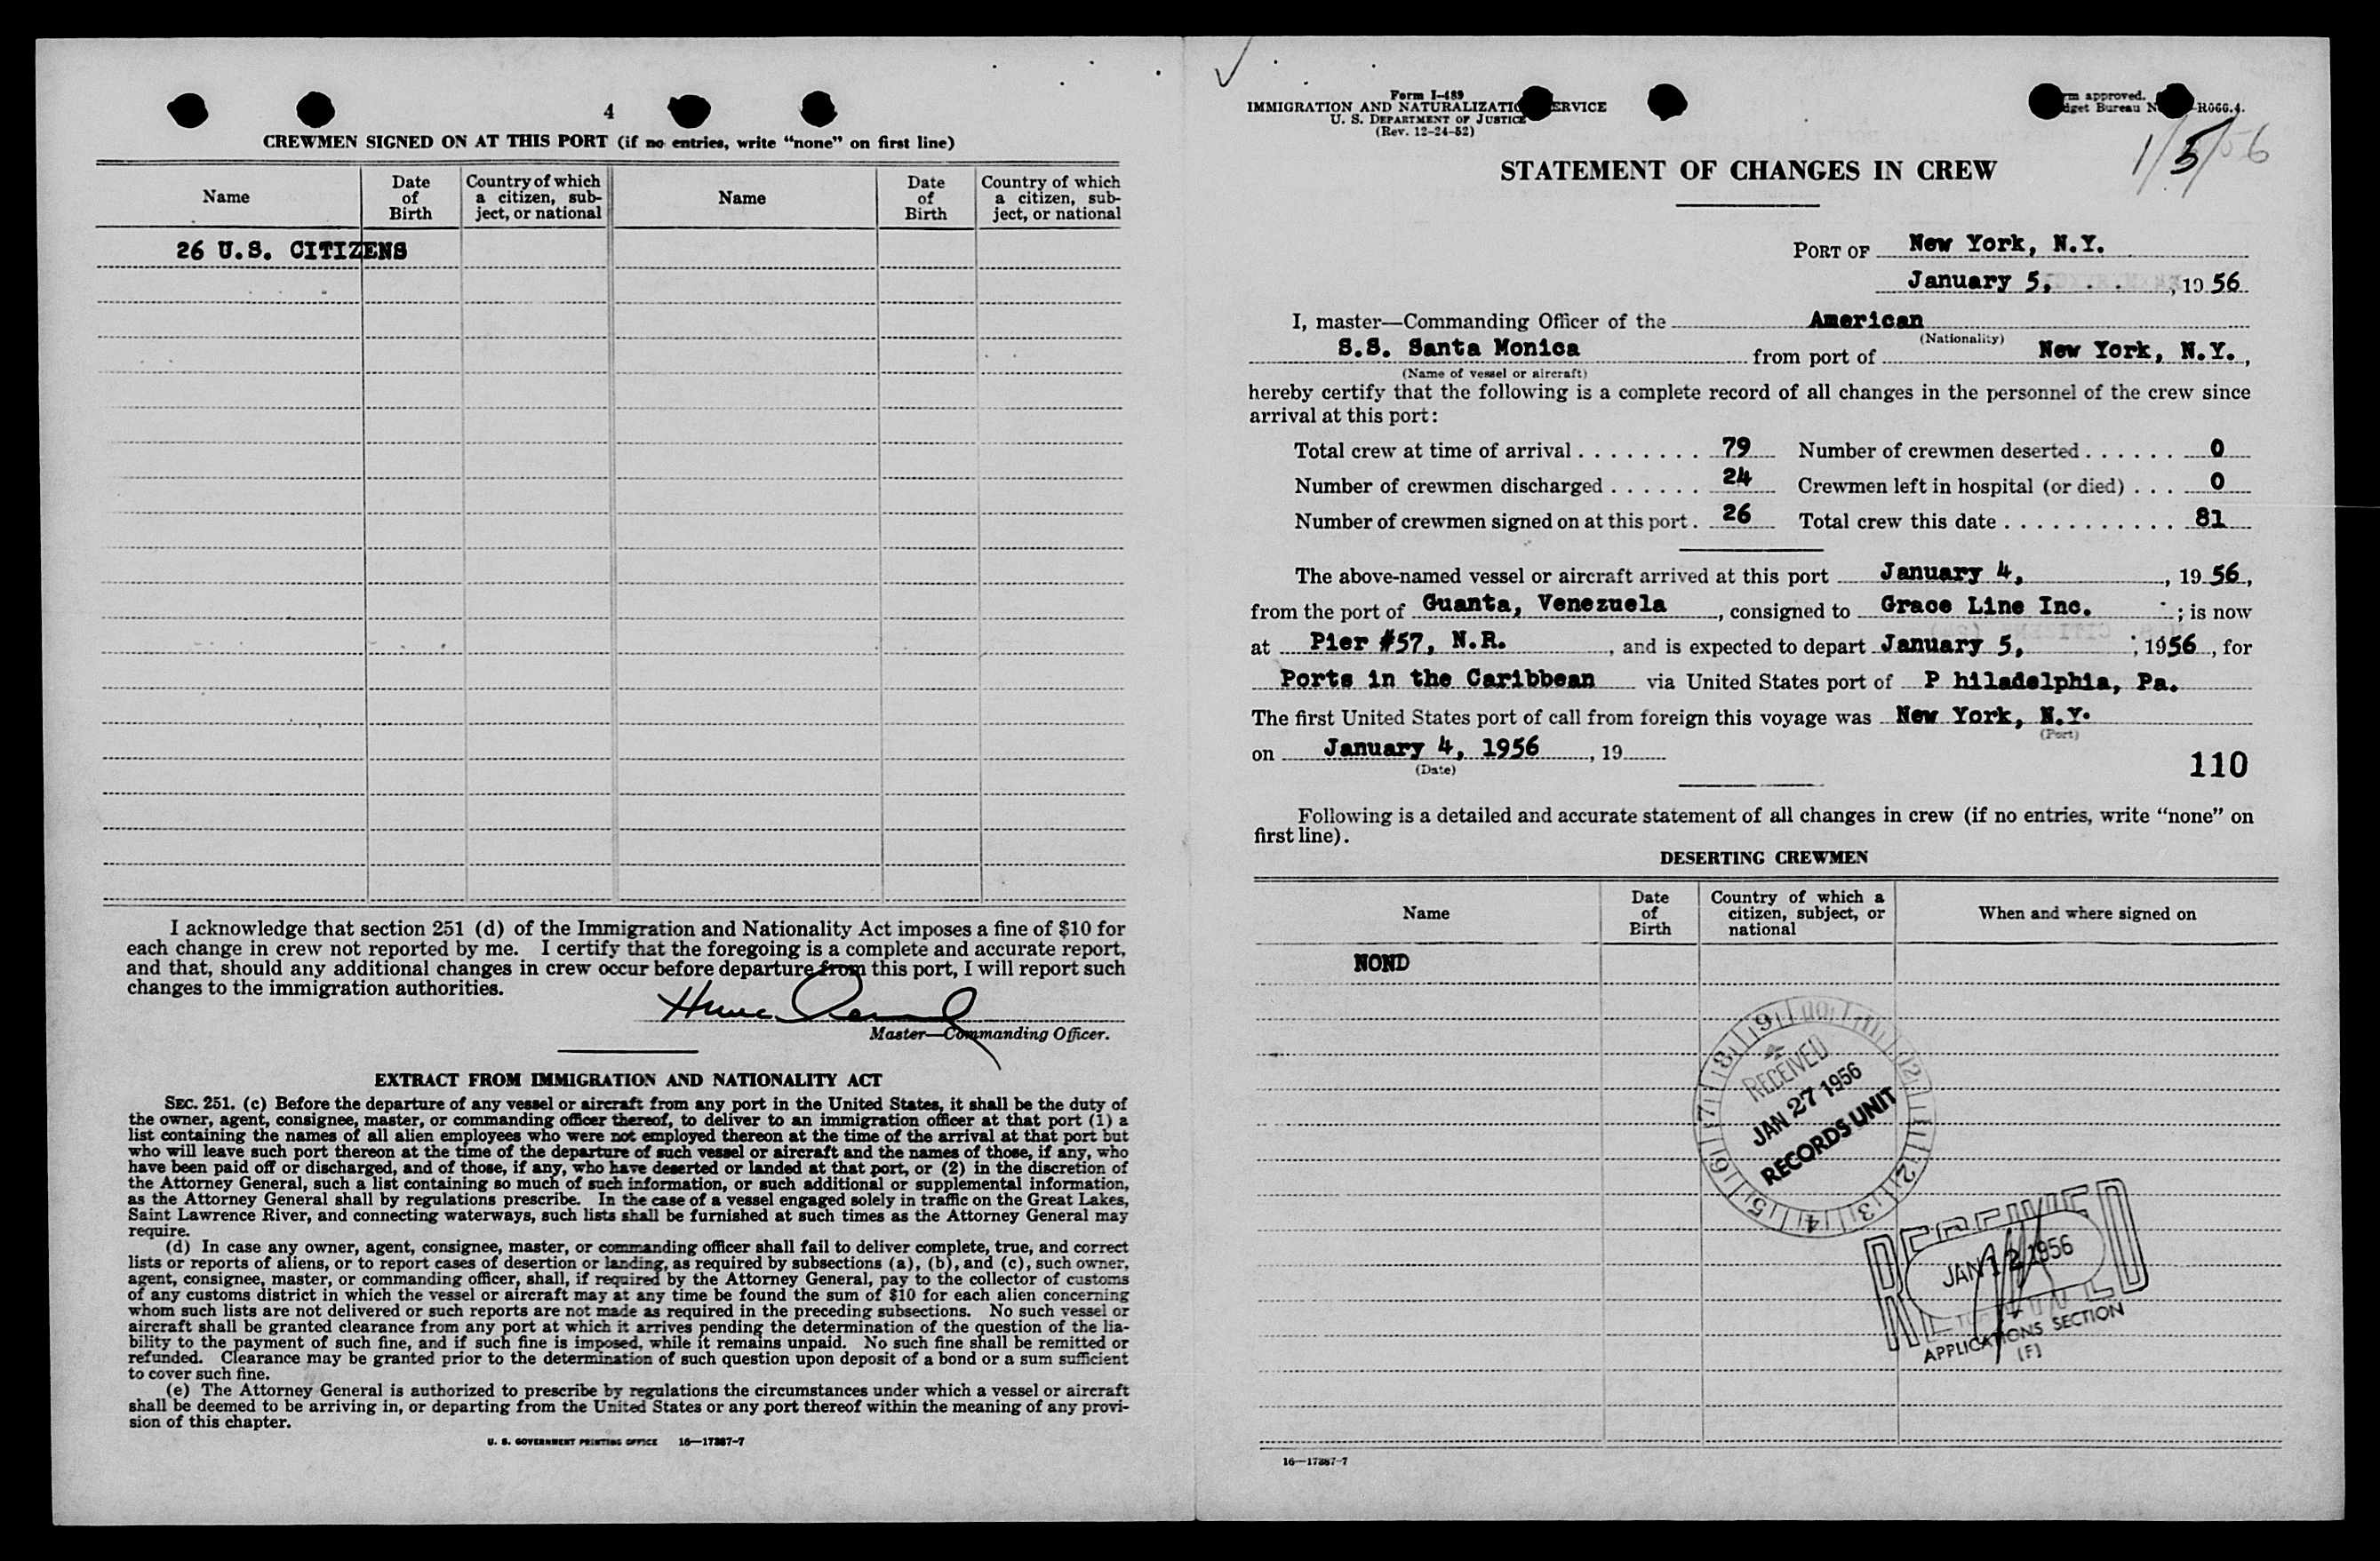 4
CREWMEN SIGNED ON AT THIS PORT (if no entries, write “none” on first line)
Name
Date of Birth
Country of which a citizen, subject, or national
Name
Date of Birth
Country of which a citizen, subject, or national
26 U.S. CITIZENS
I acknowledge that section 251 (d) of the Immigration and Nationality Act imposes a fine of $10 for
each change in crew not reported by me. I certify that the foregoing is a complete and accurate report,
and that, should any additional changes in crew occur before departure from this port, I will report such
changes to the immigration authorities.
Master—Commanding Officer.
EXTRACT FROM IMMIGRATION AND NATIONALITY ACT
SEC. 251. (c) Before the departure of any vessel or aircraft from any port in the United States, it shall be the duty of
the owner, agent, consignee, master, or commanding officer thereof, to deliver to an immigration officer at that port (1) a
list containing the names of all alien employees who were not employed thereon at the time of the arrival at that port but
who will leave such port thereon at the time of the departure of such vessel or aircraft and the names of those, if any, who
have been paid off or discharged, and of those, if any, who have deserted or landed at that port, or (2) in the discretion of
the Attorney General, such a list containing so much of such information, or such additional or supplemental information,
as the Attorney General shall by regulations prescribe. In the case of a vessel engaged solely in traffic on the Great Lakes,
Saint Lawrence River, and connecting waterways, such lists shall be furnished at such times as the Attorney General may
require.
(d) In case any owner, agent, consignee, master, or commanding officer shall fail to deliver complete, true, and correct
lists or reports of aliens, or to report cases of desertion or landing, as required by subsections (a), (b), and (c), such owner,
agent, consignee, master, or commanding officer, shall, if required by the Attorney General, pay to the collector of customs
of any customs district in which the vessel or aircraft may at any time be found the sum of $10 for each alien concerning
whom such lists are not delivered or such reports are not made as required in the preceding subsections. No such vessel or
aircraft shall be granted clearance from any port at which it arrives pending the determination of the question of the lia-
bility to the payment of such fine, and if such fine is imposed, while it remains unpaid. No such fine shall be remitted or
refunded. Clearance may be granted prior to the determination of such question upon deposit of a bond or a sum sufficient
to cover such fine.
(e) The Attorney General is authorized to prescribe by regulations the circumstances under which a vessel or aircraft
shall be deemed to be arriving in, or departing from the United States or any port thereof within the meaning of any provi-
sion of this chapter.
U. S. GOVERNMENT PRINTING OFFICE 16—17387-7
Form I-489
IMMIGRATION AND NATURALIZATION SERVICE
U. S. DEPARTMENT OF JUSTICE
(Rev. 12-24-52)
approved.
Bureau -R066.4.
1/5/56
STATEMENT OF CHANGES IN CREW
PORT OF New York, N.Y.
January 5, , 19 56
I, master—Commanding Officer of the American
(Nationality)
S.S. Santa Monica from port of New York, N.Y.,
(Name of vessel or aircraft)
hereby certify that the following is a complete record of all changes in the personnel of the crew since
arrival at this port:
Total crew at time of arrival 79 Number of crewmen deserted 0
Number of crewmen discharged 24 Crewmen left in hospital (or died) 0
Number of crewmen signed on at this port 26 Total crew this date 81
The above-named vessel or aircraft arrived at this port January 4, , 19 56,
from the port of Guanta, Venezuela, consigned to Grace Line Inc. ; is now
at Pier #57, N.R. , and is expected to depart January 5, , 1956, for
Ports in the Caribbean via United States port of P hiladelphia, Pa.
The first United States port of call from foreign this voyage was New York, N.Y.
(Port)
on January 4, 1956 , 19
(Date)
110
Following is a detailed and accurate statement of all changes in crew (if no entries, write “none” on
first line).
DESERTING CREWMEN
Name
Date of Birth
Country of which a citizen, subject, or national
When and where signed on
NOND
9 10 11 12 1 2 3 4 5 6 7 8
RECEIVED
JAN 27 1956
RECORDS UNIT
RECEIVED
JAN 12 1956
APPLICATIONS SECTION
(F)
16—17387-7